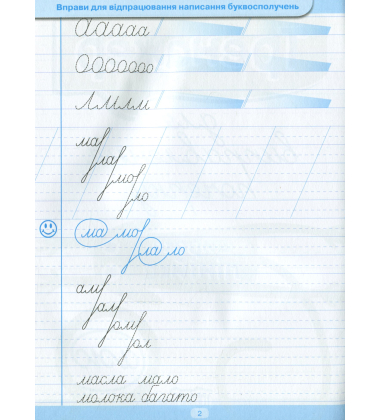 Вправи для відпрацювання написання буквосполучень
ааааа
ооооооо
ллллм
ма
ла
мо
ло
ма мо
ла ло
ам
ам
ом
ол
масла мало
молока багато
2